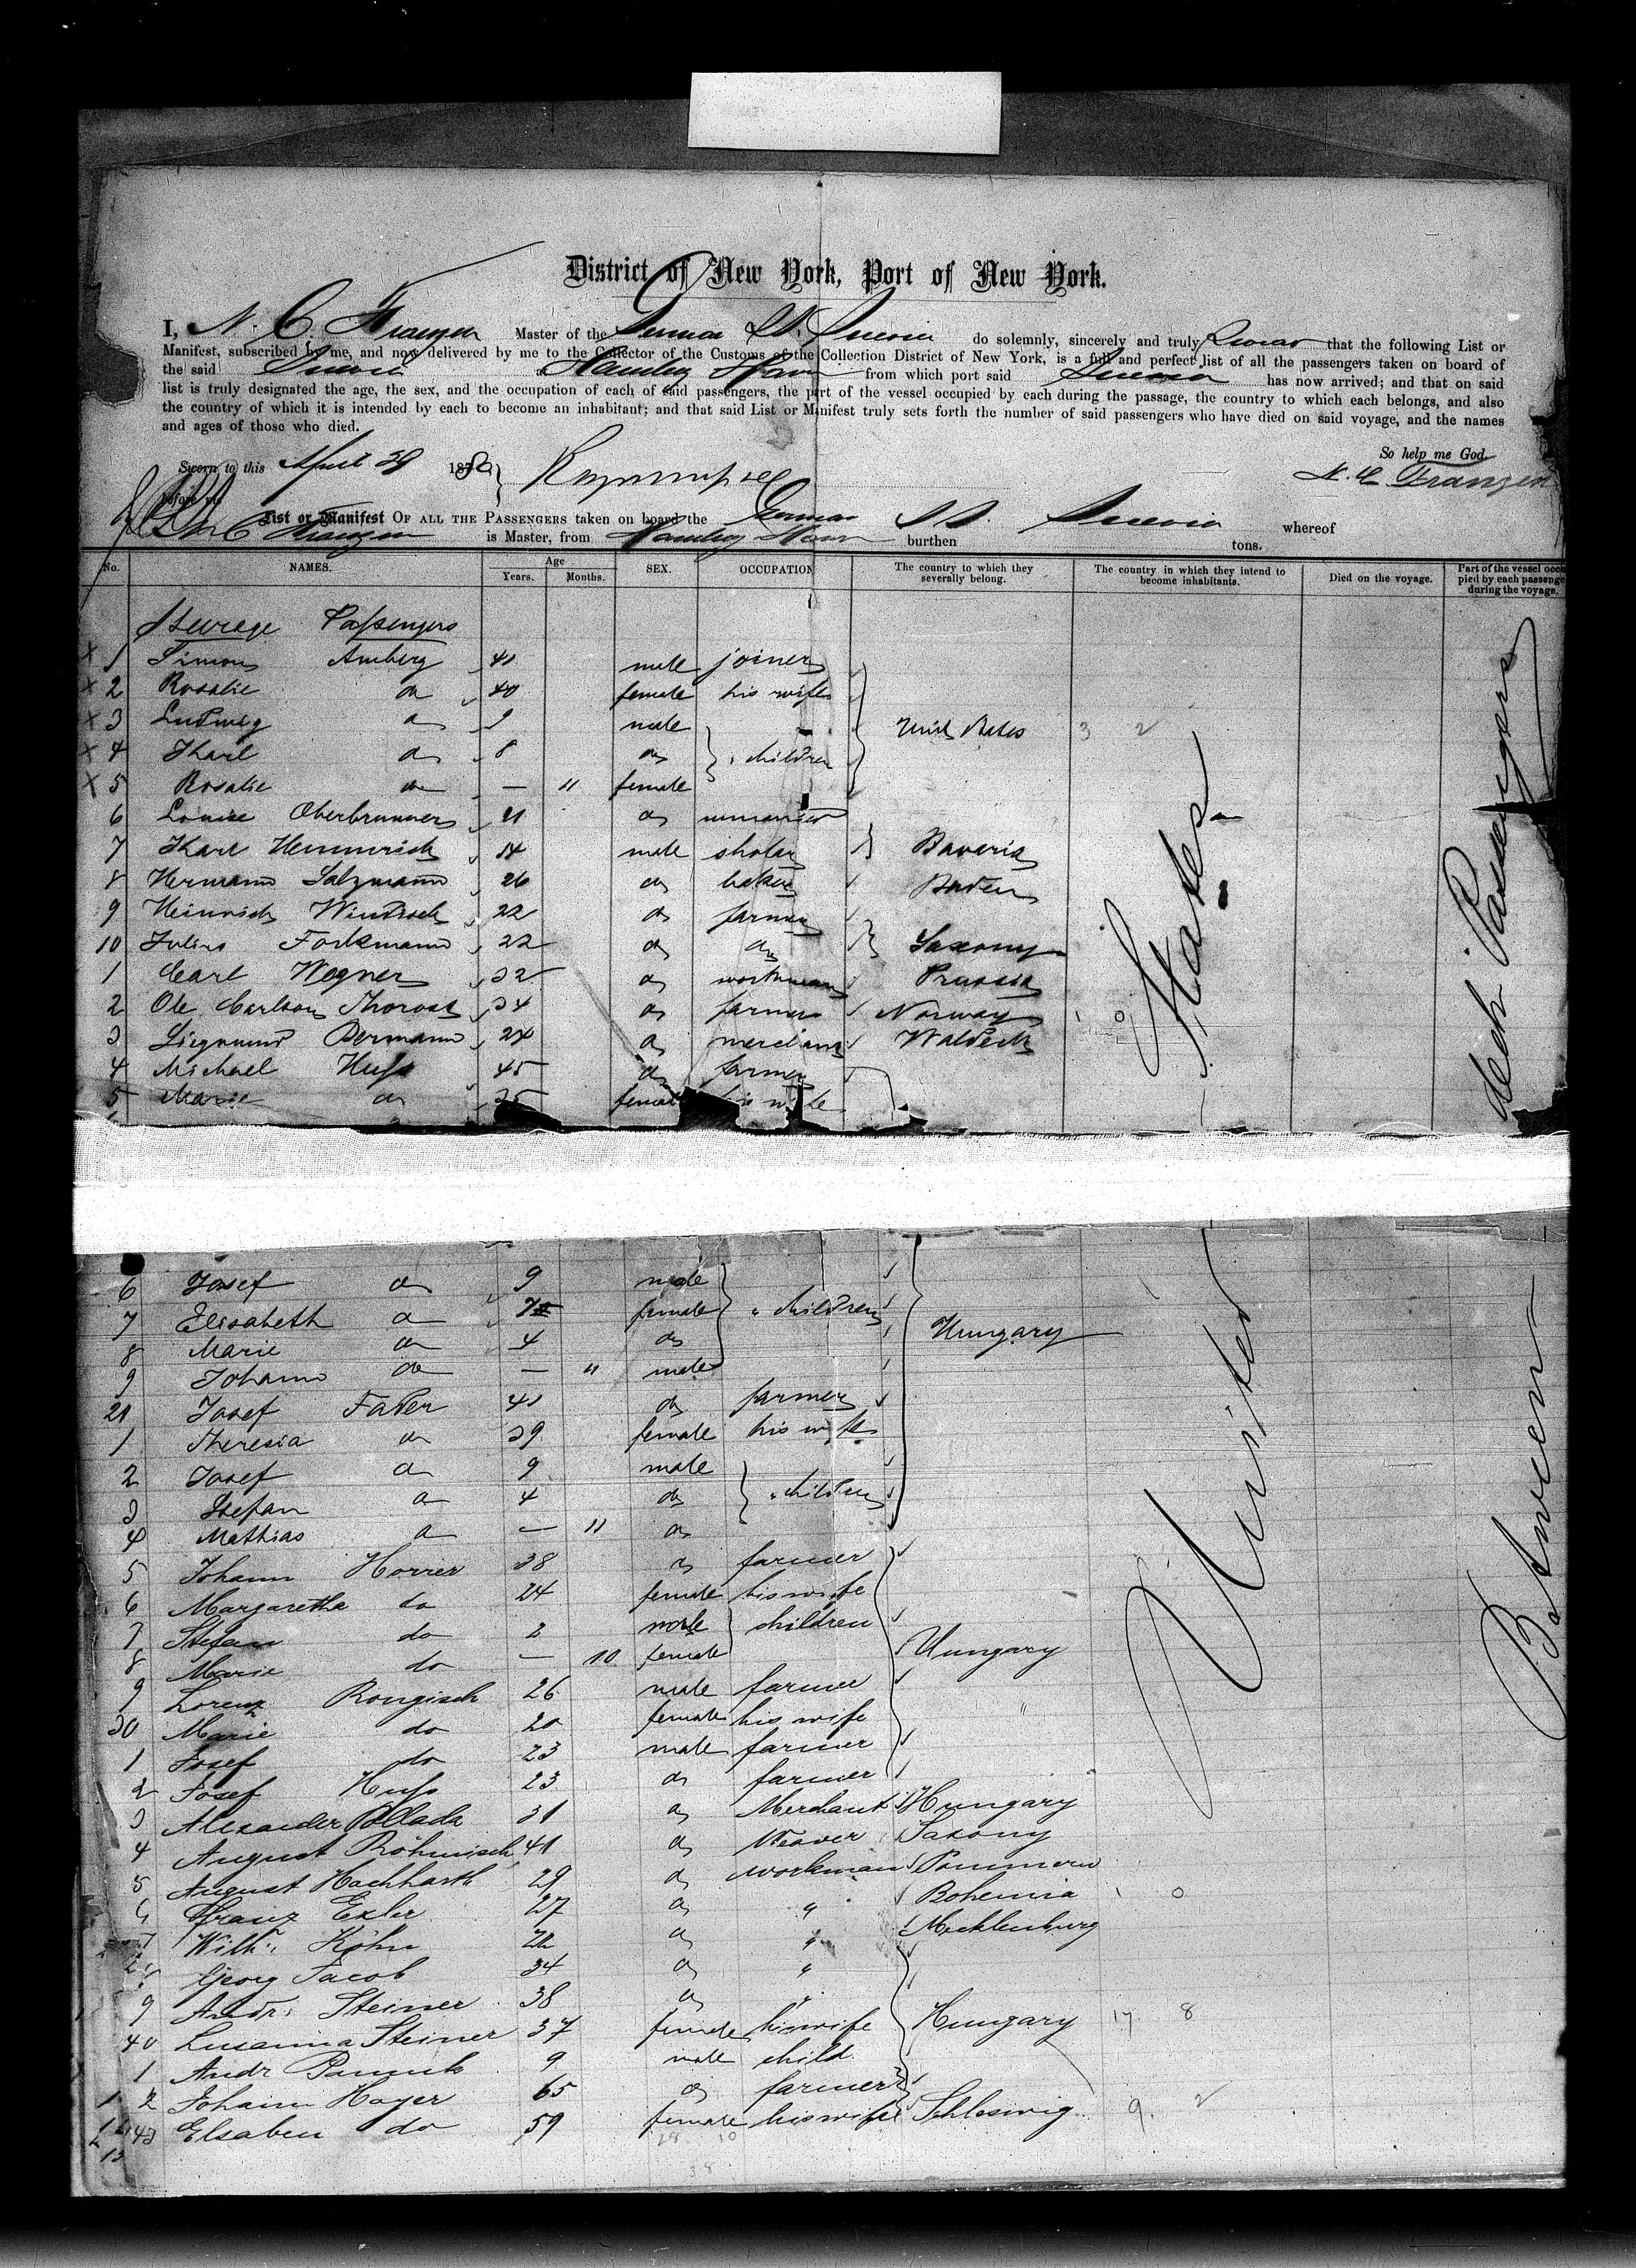 District of New York, Port of New York.
I, N. C. Franzen Master of the German SS. Suevia do solemnly, sincerely and truly Swear that the following List or
Manifest, subscribed by me, and now delivered by me to the Collector of the Customs of the Collection District of New York, is a full and perfect list of all the passengers taken on board of
the said Suevia from which port said Suevia has now arrived; and that on said
list is truly designated the age, the sex, and the occupation of each of said passengers, the part of the vessel occupied by each during the passage, the country to which each belongs, and also
the country of which it is intended by each to become an inhabitant; and that said List or Manifest truly sets forth the number of said passengers who have died on said voyage, and the names
and ages of those who died.
So help me God.
Sworn to this April 1880
N. C. Franzen
before me
List or Manifest OF ALL THE PASSENGERS taken on board the German SS. Suevia whereof
N C Franzen is Master, from burthen tons.
No. NAMES. Age Years. Months. SEX. OCCUPATION The country to which they severally belong. The country in which they intend to become inhabitants. Died on the voyage. Part of the vessel occupied by each passenger during the voyage.
Steerage Passengers
1 Simon Amberg 41 male joiner
2 Rosalie do 40 female his wife
3 Ludwig do 9 male
Unit. States 3 2
4 Karl do 8 do children
5 Rosalie do — " female
6 Louise Oberbrunner 21 do unmarried
7 Karl Hemmerich 14 male sholar Bavaria
8 Hermann Salzmann 26 do baker Baden
9 Heinrich Windisch 22 do farmer
10 Julius Forkmann 22 do do Saxony
1 Carl Wegner 32 do workman Prussia
2 Ole Carlson 34 do farmer Norway 1 0
3 Siegmund Bermann 24 do merchant Waldeck
4 Michael Huss 45 do farmer
5 Marie do 35 female his wife
6 Josef do 9 male
7 Elisabeth do 7 female children
Hungary
8 Marie do 4 do
9 Johann do — " male
21 Josef Fader 41 do farmer
1 Theresia do 39 female his wife
2 Josef do 9 male
3 Stefan do 4 do children
4 Mathias do — 11 do
5 Johann Horrer 38 do farmer
6 Margaretha do 24 female his wife
7 Stefan do 2 male children
8 Marie do — 10 female
Hungary
9 Lorenz Rongisch 26 male farmer
30 Marie do 20 female his wife
1 Josef do 23 male farmer
2 Josef Huss 23 do farmer
3 Alexander Pollack 31 do Merchant Hungary
4 August Röhmisch 41 do Weaver Saxony
5 August Hachharth 29 do workman Pommern
6 Franz Exler 27 do " Bohemia 1 0
7 Wilh. Köhn 22 do " Mecklenburg
8 Georg Jacob 34 do "
9 Andr. Steiner 38 do "
40 Susanna Steiner 37 female his wife Hungary 17 8
1 Andr 9 male child
2 Johann Hoyer 65 do farmer
43 Elsaben do 59 female his wife Schleswig 9 2
28 10
38
United States
Between deck Passengers